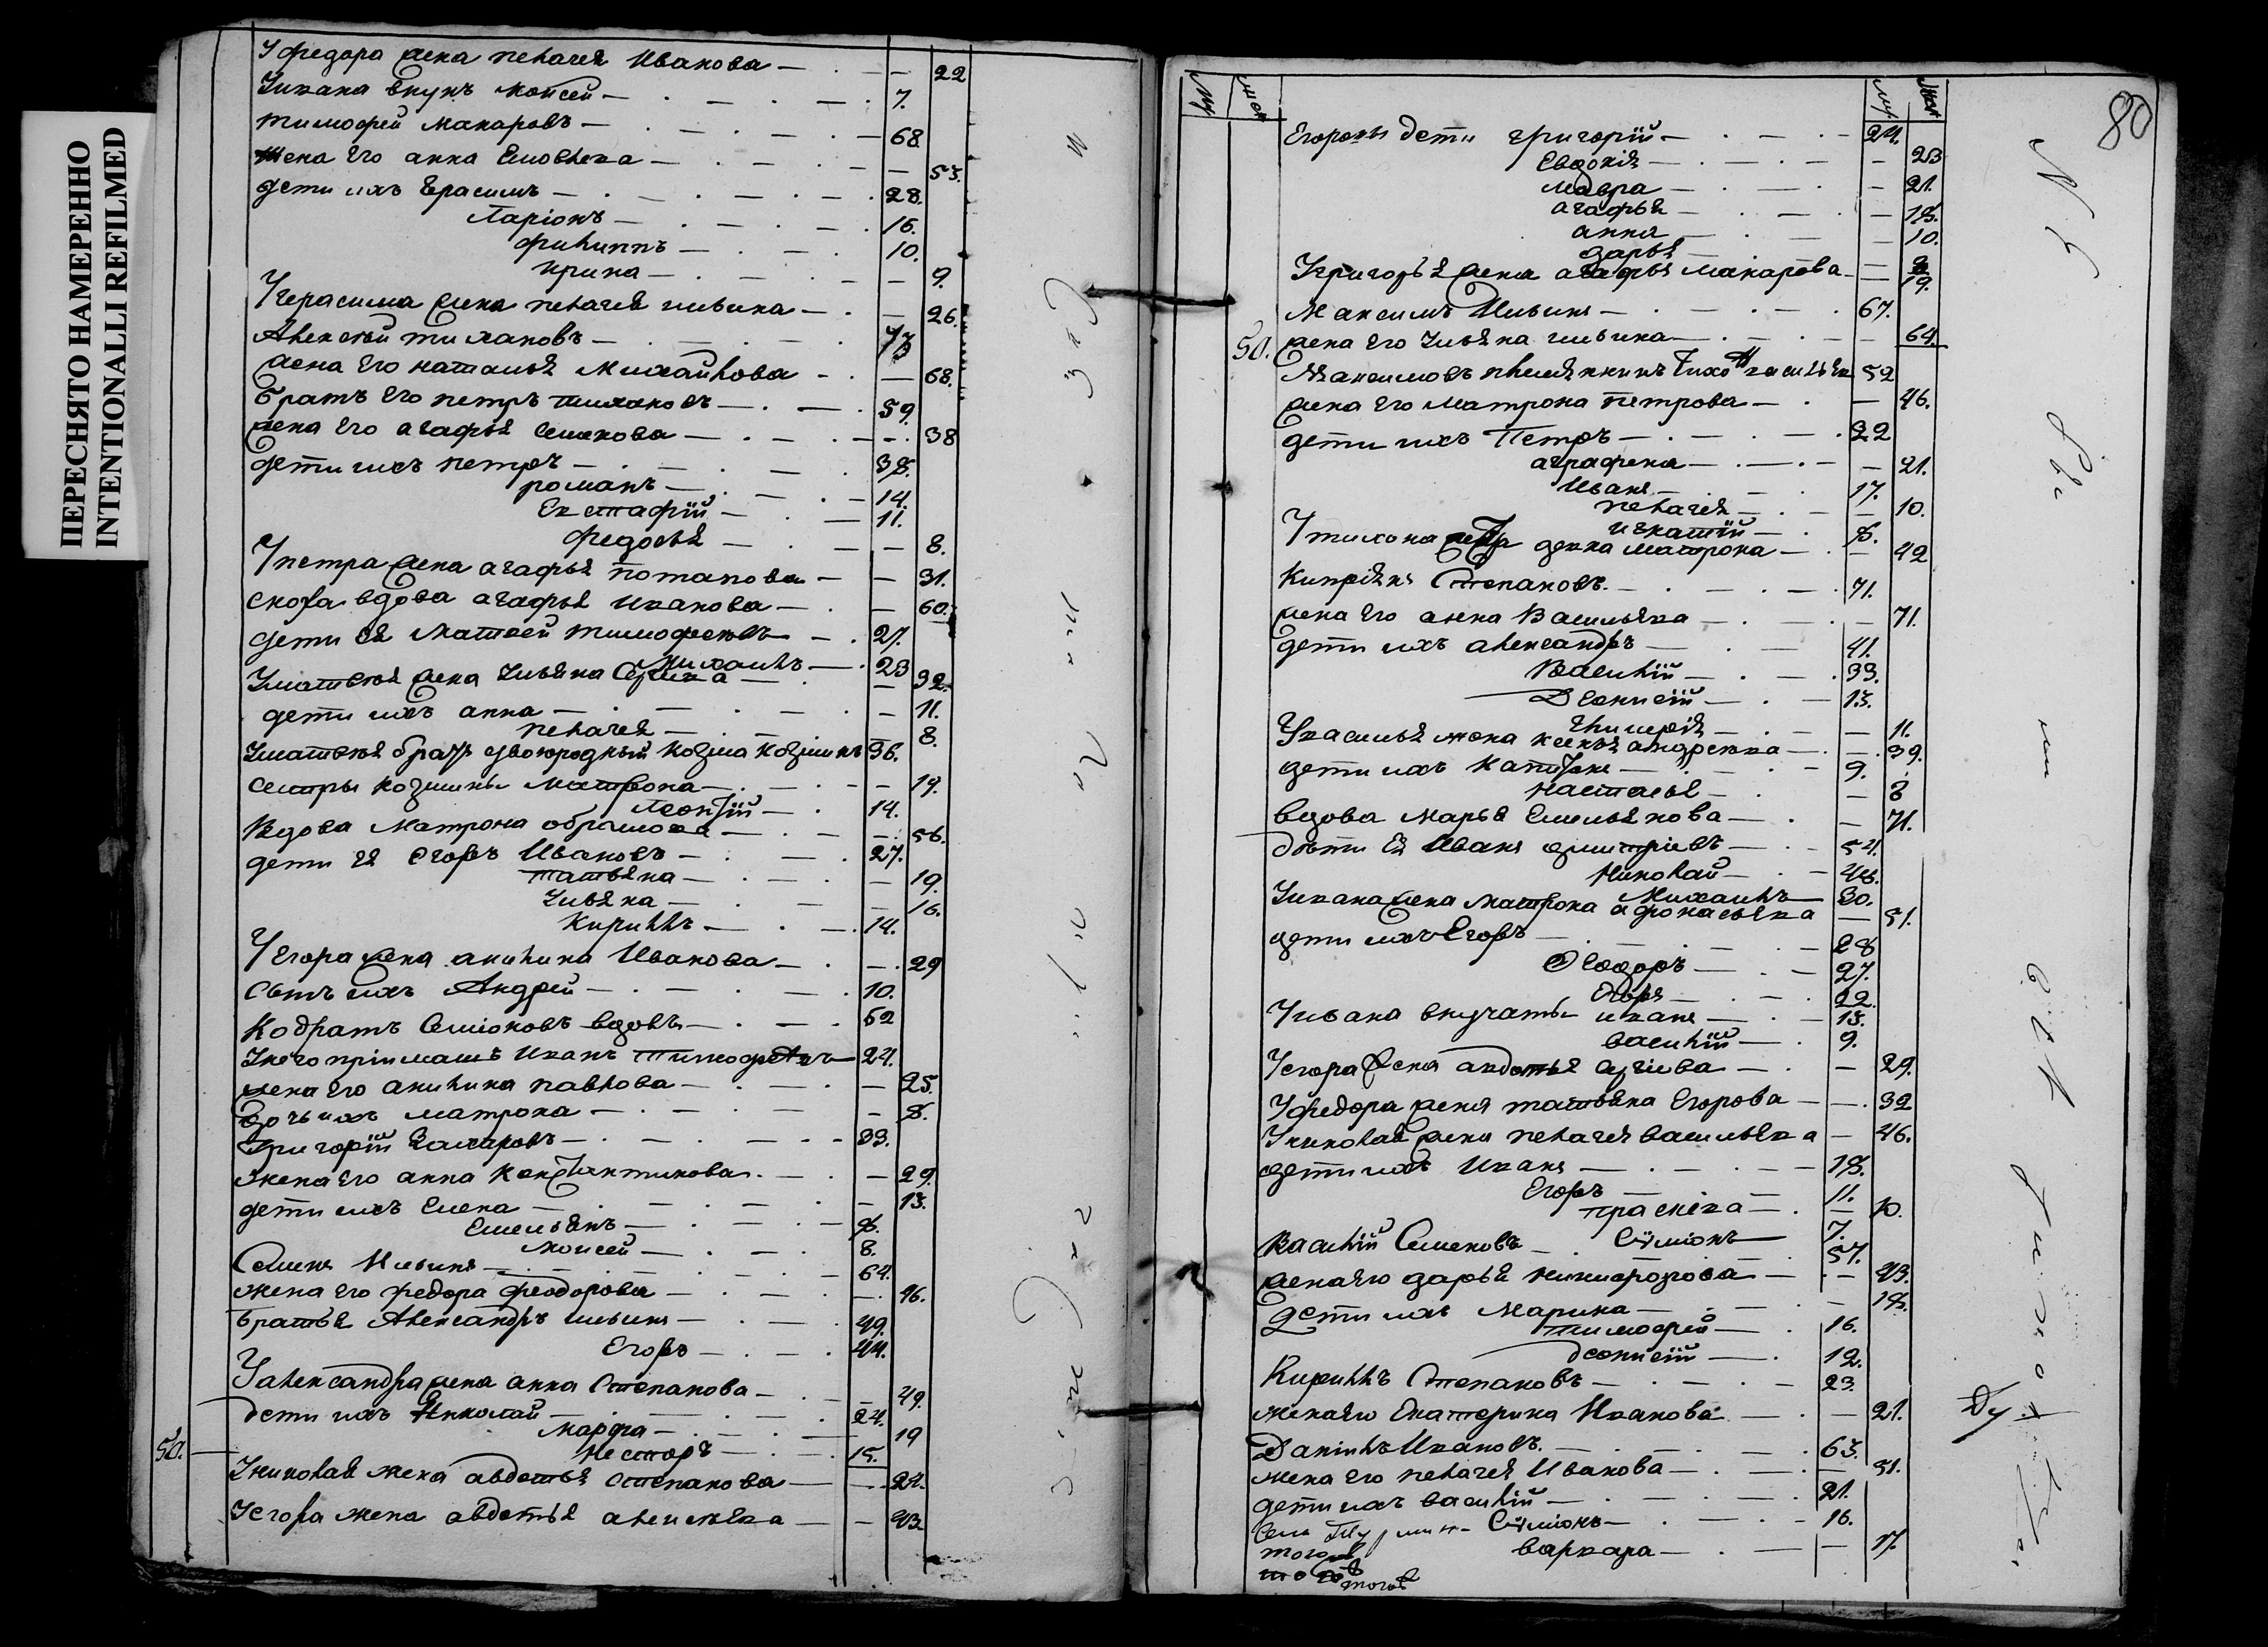 ПЕРЕСНЯТО НАМЕРЕННО
INTENTIONALLI REFILMED
У федора жена пелагея Иванова — 22
Уивана внукъ моисей — 7.
тимофей макаровъ — 68.
жена его анна — 53.
дети ихъ Герасимъ — 28.
Ларіонъ — 16.
филиппъ — 10.
ирина — 9.
Угерасима жена пелагея ильина — 26.
Алексей тихановъ — 73
жена его наталья Михайлова — 68.
братъ его петръ тихановъ — 59.
жена его агафья семенова — 38
дети ихъ петръ — 38.
романъ — 14.
Евстафій — 11.
федосья — 8.
Упетра жена агафья потапова — 31.
сноха вдова агафья иванова — 60.
дети ея Матвей тимофеевъ — 27.
Михаилъ — 23
Уматвея жена ульяна — 32.
дети ихъ анна — 11.
пелагея — 8.
Уматвея братъ двоюродный козма козминъ 36.
сестры козмины Матрона — 19.
Леонтій — 14.
Вдова Матрона — 56.
дети ея Егоръ Ивановъ — 27.
татьяна — 19.
Ульяна — 16.
Кирилъ — 14.
У Егора жена акилина Иванова — 29
сынъ ихъ Андрей — 10.
Кодратъ Семіоновъ вдовъ — 52
Унего пріимашъ Иванъ тимофеевъ — 24.
жена его акилина павлова — 25.
дочь ихъ матрона — 8.
Григорій Захаровъ — 33.
жена его анна Константинова — 29.
дети ихъ Елена — 13.
Емельянъ — 9.
моисей — 8.
Семенъ Ильинъ — 64.
жена его федора феодорова — 46.
братья Александръ ильинъ — 49.
Егоръ — 44.
Уалександра жена анна Степанова — 49.
дети ихъ Николай — 24.
марфа — 19
50. Несторъ — 15.
Униколая жена авдотья степанова — 24.
Уегора жена авдотья алексеева — 43.
80
му жен му жен
Егоровы дети григорій — 24.
Евдокія — 23
мавра — 21.
агафья — 18.
анна — 10.
дарья
Угригорья жена агафья макарова — 19.
Максимъ Ильинъ — 67.
50. жена его Ульяна ильина — 64.
Максимовъ племянникъ Тихонъ васильевъ 52
жена его Матрона петрова — 46.
дети ихъ Петръ — 22
аграфена — 21.
Иванъ — 17.
пелагея — 10.
игнатій — 8.
Утихона сестра девка матрона — 42
Кипріянъ Степановъ — 71.
жена его анна Васильева — 71.
дети ихъ александръ — 41.
Василій — 33.
Деонисій — 13.
Гликерія — 11.
Увасилья жена ксенья андреева — 39.
дети ихъ Капитонъ — 9.
настасья — 8
вдова марья Емельянова — 71.
дѣти ея Иванъ дмитріевъ — 54.
Николай — 48.
Михаилъ — 30.
Уивана жена матрона афонасьева — 51.
дети ихъ Егоръ — 28
Феодоръ — 27.
Егоръ — 22.
Уивана внучаты иванъ — 13.
василій — 9.
Уегора жена авдотья — 29.
Уфедора жена татьяна Егорова — 32
Униколая жена пелагея васильева — 46.
дети ихъ Иванъ — 18.
Егоръ — 11.
прасковья — 10.
Сѵміонъ — 7.
Василій Семеновъ — 57.
жена его дарья никифорова — 43.
дети ихъ Марина — 18.
тимофей — 16.
деонисій — 12.
Кириллъ Степановъ — 23.
жена его Екатерина Иванова — 21.
Даніилъ Ивановъ — 63.
жена его пелагея Иванова — 51.
дети ихъ василій — 21.
Сѵміонъ — 16.
варвара — 17.